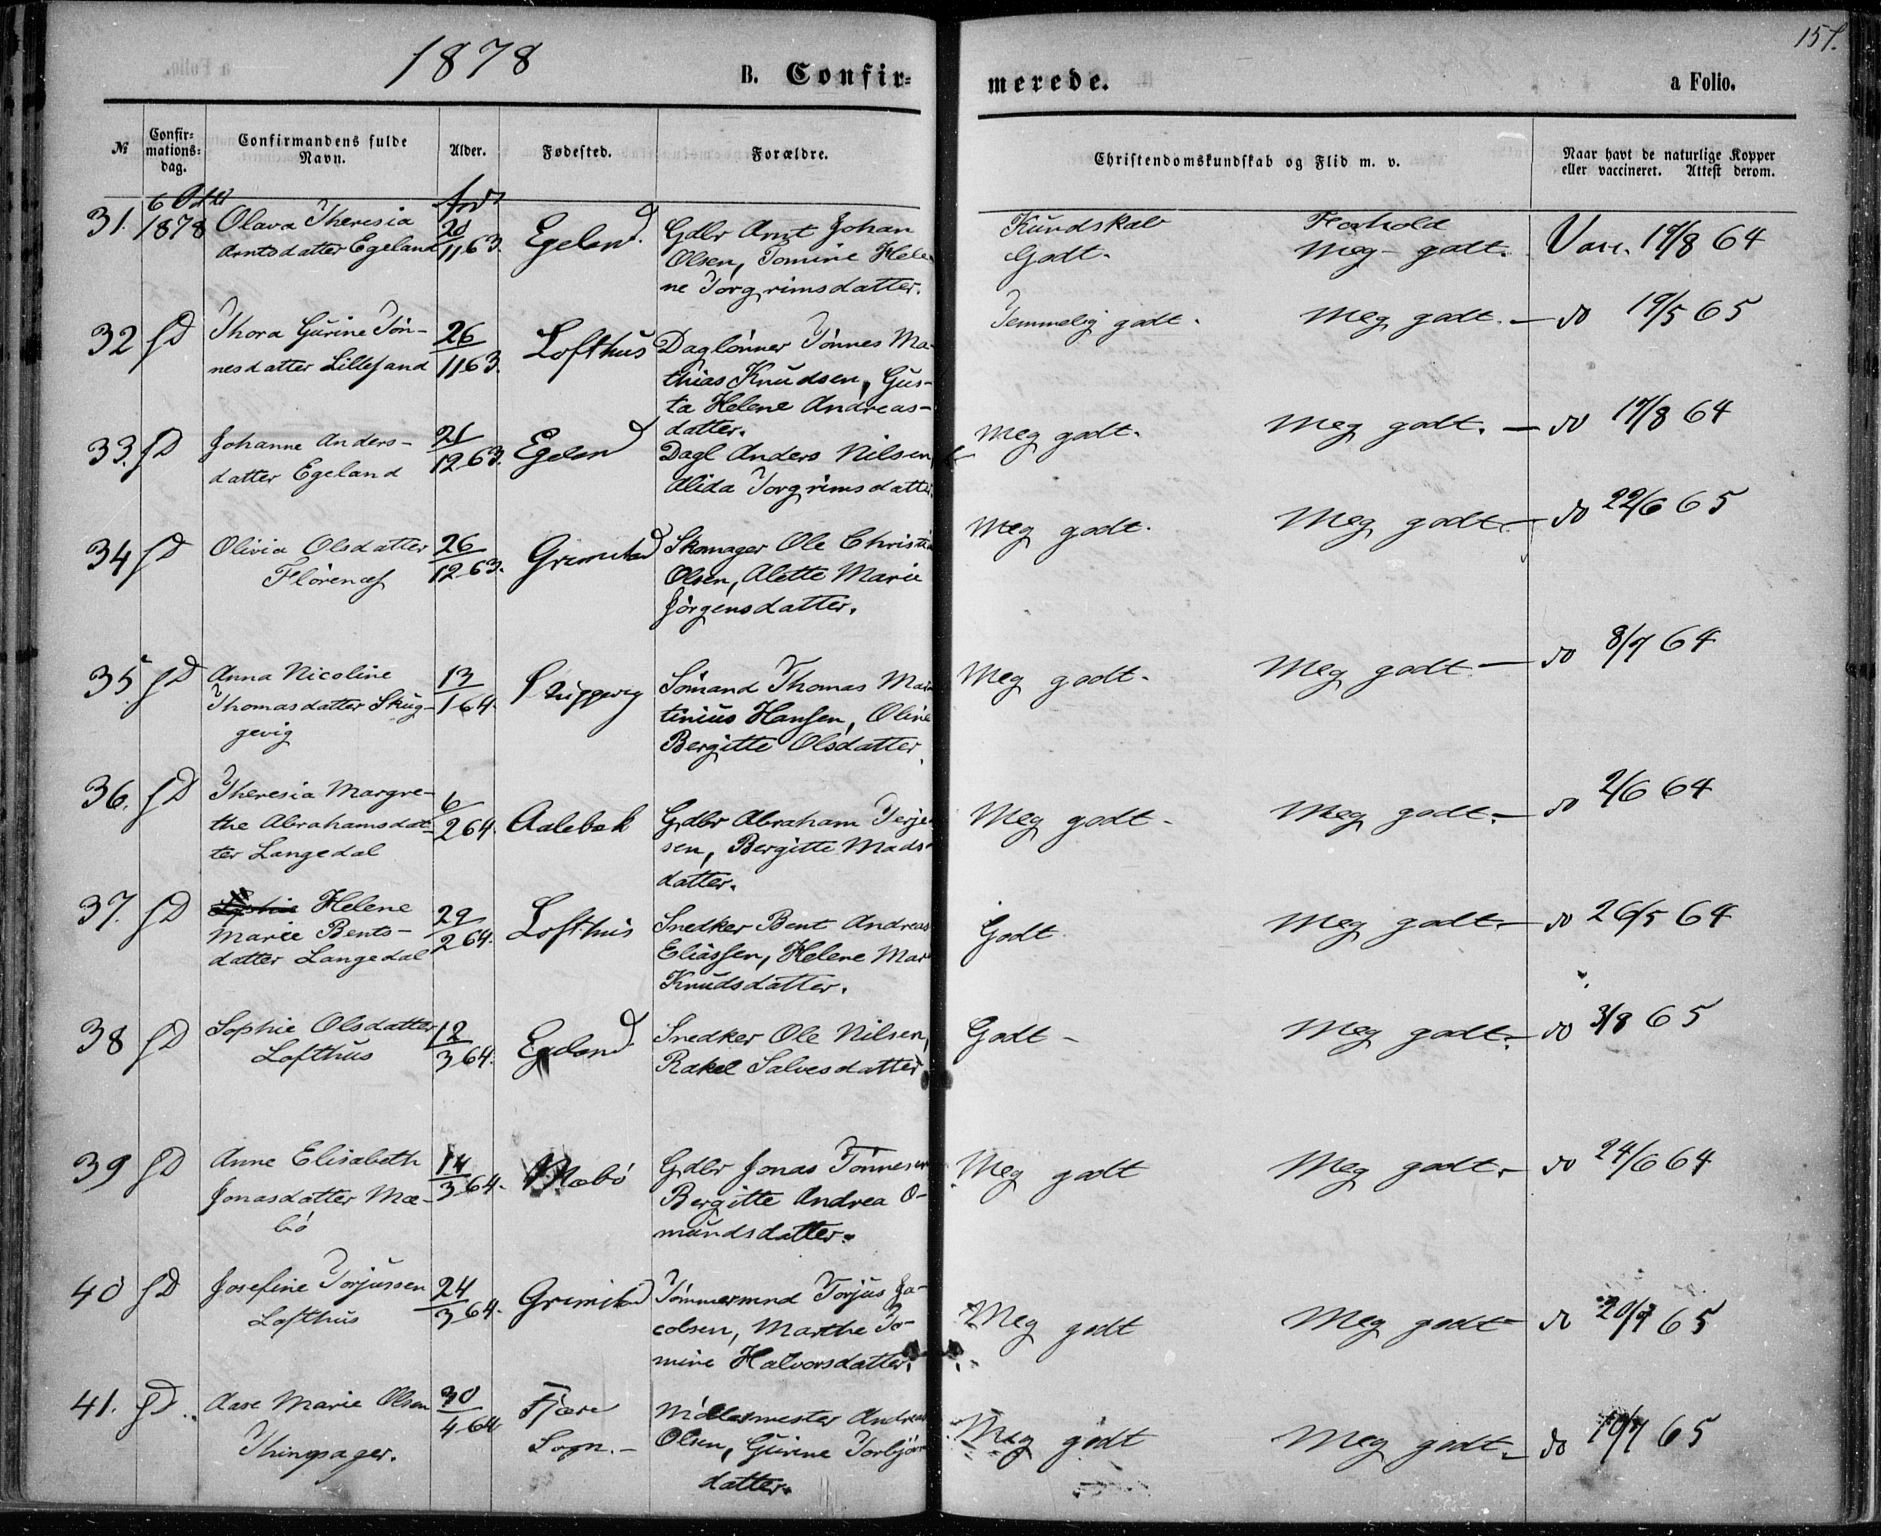 1878
B. Confir=
merede.
a Folio.
157.
№
Confir=
mations=
dag.
Confirmandens fulde
Navn.
Alder.
Fødested.
Forældre.
Christendomskundskab og Flid m. v.
Naar havt de naturlige Kopper
eller vaccineret. Attest derom.
31. 6
1878 Olava Theresia
Arntsdatter Egeland 20/11 63. Egeland. Gdbr Arnt Johan
Olsen, Tomine Hele-
ne Torgrimsdatter.
Kundskab Forhold
Godt. Meg godt. Vacc. 17/8 64
32 sD Thora Gurine Tön-
nesdatter Lillesand 26/11 63. Lofthus Daglönner Tönnes Ma-
thias Knudsen, Gus-
ta Helene Andreas-
datter.
Temmelig godt. Meg godt. — do 19/5 65
33. sD Johanne Anders-
datter Egeland 21/12 63. Egeland Dagl Anders Nilsen
Alida Torgrimsdatter
Meg godt. Meg godt. — do 17/8 64
34 sD Olivia Olsdatter
Flörenæs 26/12 63. Grimstad Skomager Ole Christia
Olsen, Alette Marie
Jörgensdatter.
Meg godt. Meg godt. — do 22/6 65
35 sD Anna Nicoline
Thomasdatter Skug-
gevig 13/1 64. Sömand Thomas Mar
tinius Hansen, Oline
Bergitte Olsdatter
Meg godt. Meg godt — do 8/7 64
36. sD Theresia Margre-
the Abrahamsdat-
ter Langedal 6/2 64. Aalebæk Gdbr Abraham Terje
sen, Bergitte Mads-
datter.
Meg godt. Meg godt. — do 2/6 64
37. sD Helene
Marie Bents-
datter Langedal 29/2 64. Lofthus Snedker Bent Andreas
Eliassen, Helene Mar
Knudsdatter.
Godt. Meg godt. — do 26/5 64
38 sD Sophie Olsdatter
Lofthus 12/3 64. Egeland Snedker Ole Nilsen,
Rakel Salvesdatter
Godt — Meg godt. — do 3/8 65
39 sD Anne Elisabeth
Jonasdatter Mæ-
bö 14/3 64. Mæbö Gdbr Jonas Tönnesen
Bergitte Andrea O-
mundsdatter.
Meg godt Meg godt. — do 24/6 64
40 sD Josefine Torjussen
Lofthus 24/3 64. Grimstad Tömmermnd Torjus Ja-
cobsen, Marthe To-
mine Halvorsdatter.
Meg godt Meg godt — do 20/7 65
41. sD Aase Marie Olsen
Thingsager. 30/4 64 Fjære
Sogn. — Andreas
Olsen, Gurine Torbjörns
datter.
Meg godt Meg godt. — do 19/7 65